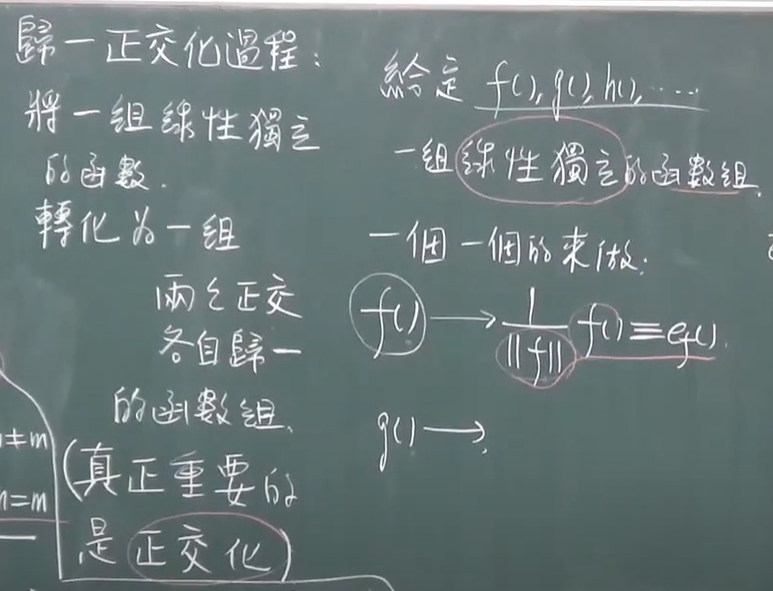 歸一正交化過程：
將一組線性獨立
的函數．
轉化为一組
兩兩正交
各自歸一
的函數組．
(真正重要的
是正交化)
給定 f(), g(), h(), ‥‥
一組線性獨立的函數組．
一個一個的來做：
f() → 1/||f|| f() ≡ e_f().
g() →
n≠m
n=m